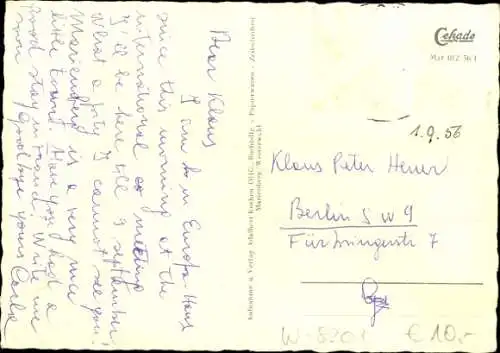 Dear Klaus
I am in Europa-Haus
since this morning at the
international meeting
I'll be here till 9 september.
What a pity I cannot see you.
Marienberg is a very nice
little town. Have you had a
good stay in ? Write me
soon Goodbye yours Carla
Aufnahme u. Verlag: Adalbert Kuchem OHG., Buchhdlg. - Papierwaren - Zeitschriften
Marienberg (Westerwald)
Cekade
Mar 102 56 1
1.9.56
Klaus Peter Heuer
Berlin S W 9
Fürbringerstr 7
W-5201 € 10,-